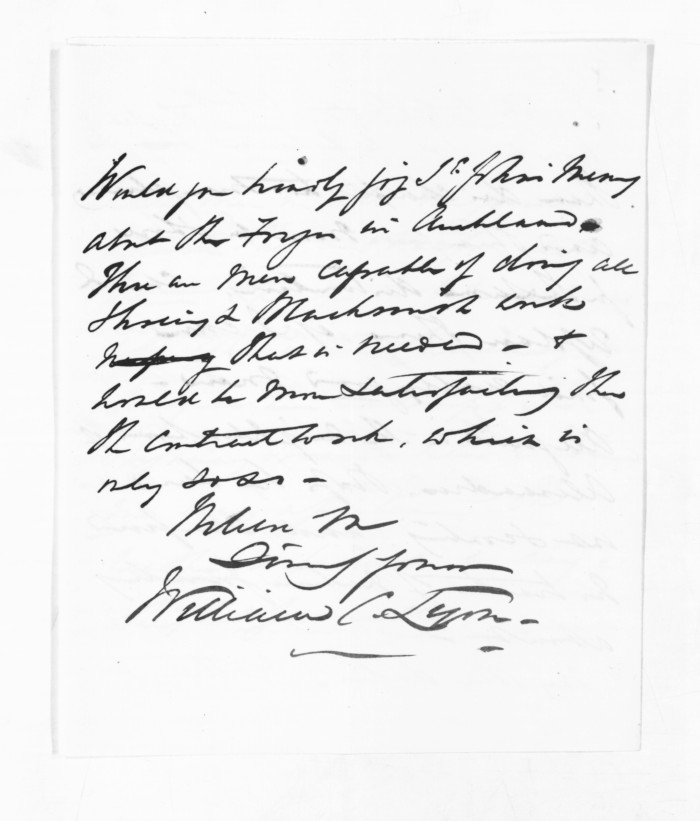 Would you kindly jog St. John's Memy
about the Forge in Auckland.
There are men capable of doing all
Shoeing & Blacksmith work
that is needed - &
would be more satisfactory than
the contract work, which is
only so so -
Believe me
Sincerely yours
William C. Lyon -